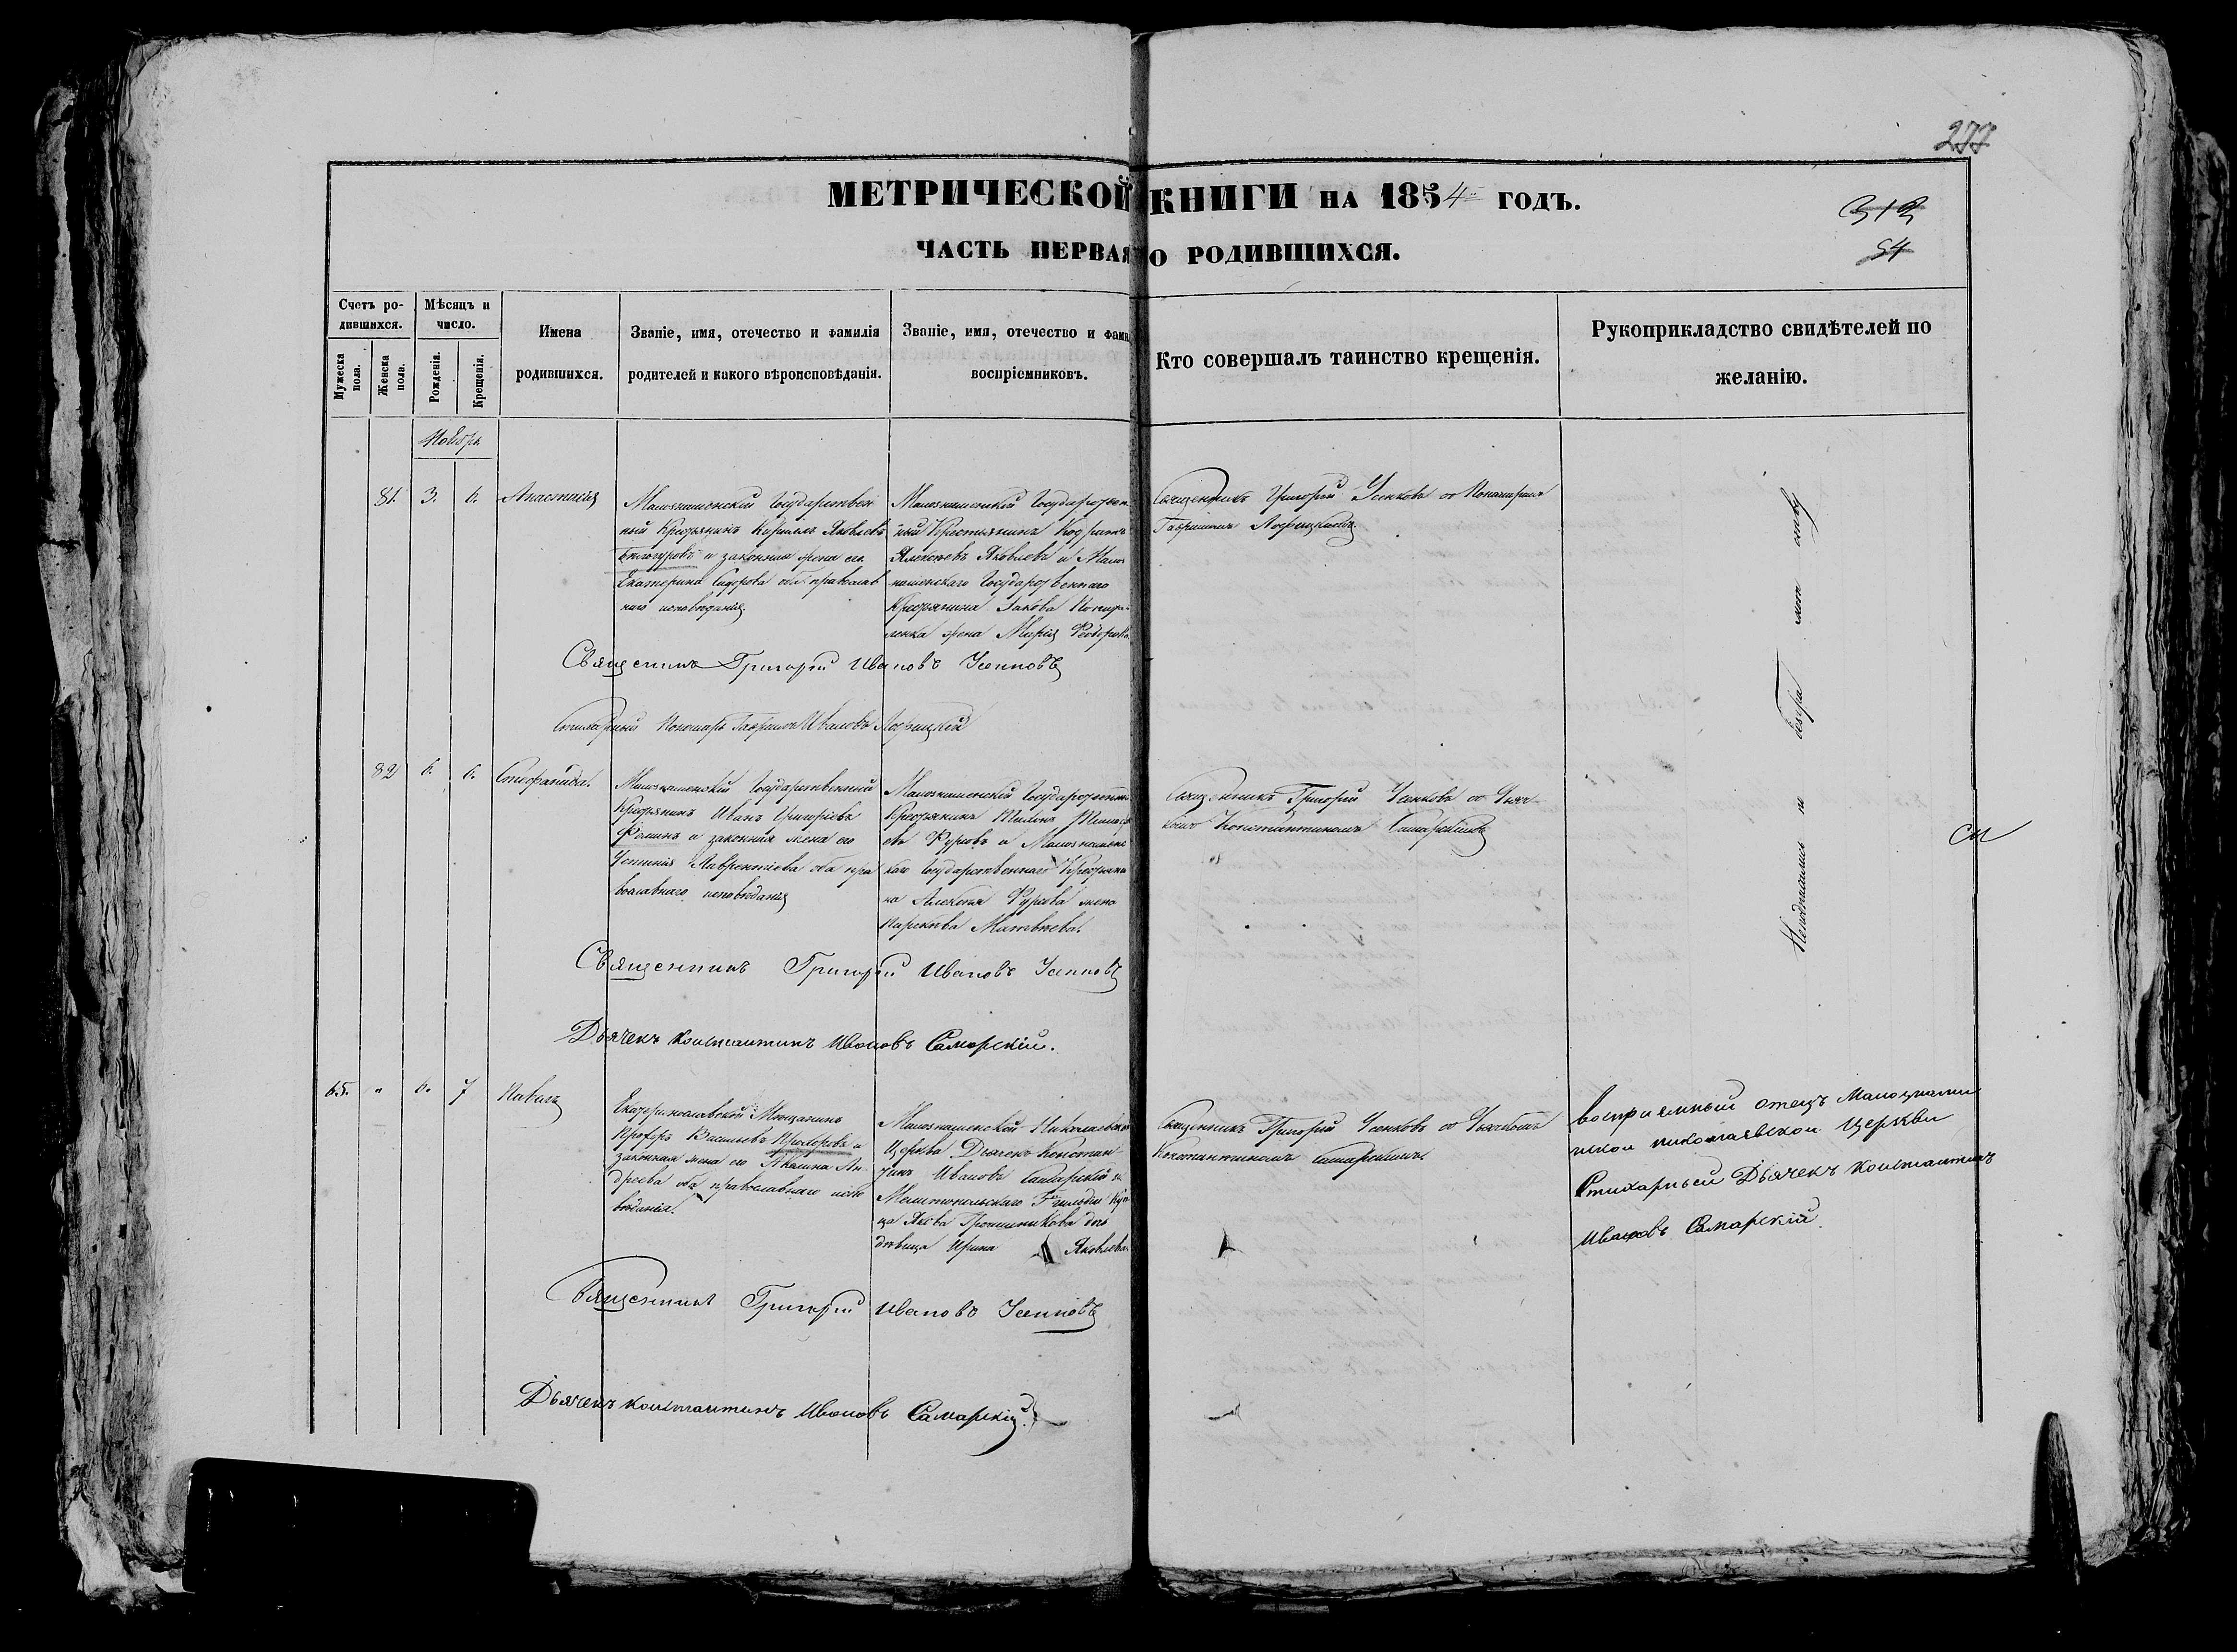 277
МЕТРИЧЕСКОЙ КНИГИ НА 1854 ГОДЪ.
313
ЧАСТЬ ПЕРВАЯ О РОДИВШИХСЯ.
54
Счетъ ро-
дившихся.
Мужеска
пола.
Женска
пола.
Мѣсяцъ и
число.
Рожденія.
Крещенія.
Имена
родившихся.
Званіе, имя, отечество и фамилія
родителей и какого вѣроисповѣданія.
Званіе, имя, отечество и фами
воспріемниковъ.
Кто совершалъ таинство крещенія.
Рукоприкладство свидѣтелей по
желанію.
Ноябрь
81. 3. 6. Анастасія
Малознаменскій Государствен
ный Крестьянинъ Кириллъ Яковлевъ
и законная жена его
Екатерина Сидорова оба православ
наго исповѣданія
Малознаменскій Государствен
ный Крестьянинъ
Яковлевъ и Мало
знаменскаго Государственнаго
Крестьянина Іакова
жена Марія Ѳеодорова
Священникъ Григорій Усенковъ съ Пономаремъ
Гавріиломъ
Священникъ Григорій Ивановъ Усенковъ
Стихарный Пономарь Гавріилъ Ивановъ
82 6. 6. Стефанида.
Малознаменскій Государственный
Крестьянинъ Иванъ Григорьевъ
и законная жена его
Устинія Лаврентіева оба пра
вославнаго исповѣданія
Малознаменскій Государственный
Крестьянинъ
Фурсовъ и Малознаменс
каго Государственнаго Крестьяни
на Алексѣя Фурсова жена
Параскева Матвѣева.
Священникъ Григорій Усенковъ съ Дьяч-
комъ Константиномъ Самарскимъ
Священникъ Григорій Ивановъ Усенковъ
Дьячекъ Константинъ Ивановъ Самарскій.
65. " 6. 7 Павелъ
Екатеринославской Мѣщанинъ
Василіевъ Прохоровъ и
законная жена его Акилина Ан-
дреева оба православнаго испо
вѣданія.
Малознаменской Николаевской
Церкви Дьячекъ Констан-
тинъ Ивановъ Самарскій и
гильдіи Куп
ца Якова дочь
дѣвица Ирина Яковлева
Священникъ Григорій Усенковъ съ Дьячкомъ
Константиномъ Самарскимъ
воспріемный отецъ Малознаме
нской николаевской Церкви
Стихарный Дьячекъ Константинъ
Ивановъ Самарскій.
Священникъ Григорій Ивановъ Усенковъ
Дьячекъ Константинъ Ивановъ Самарскій.